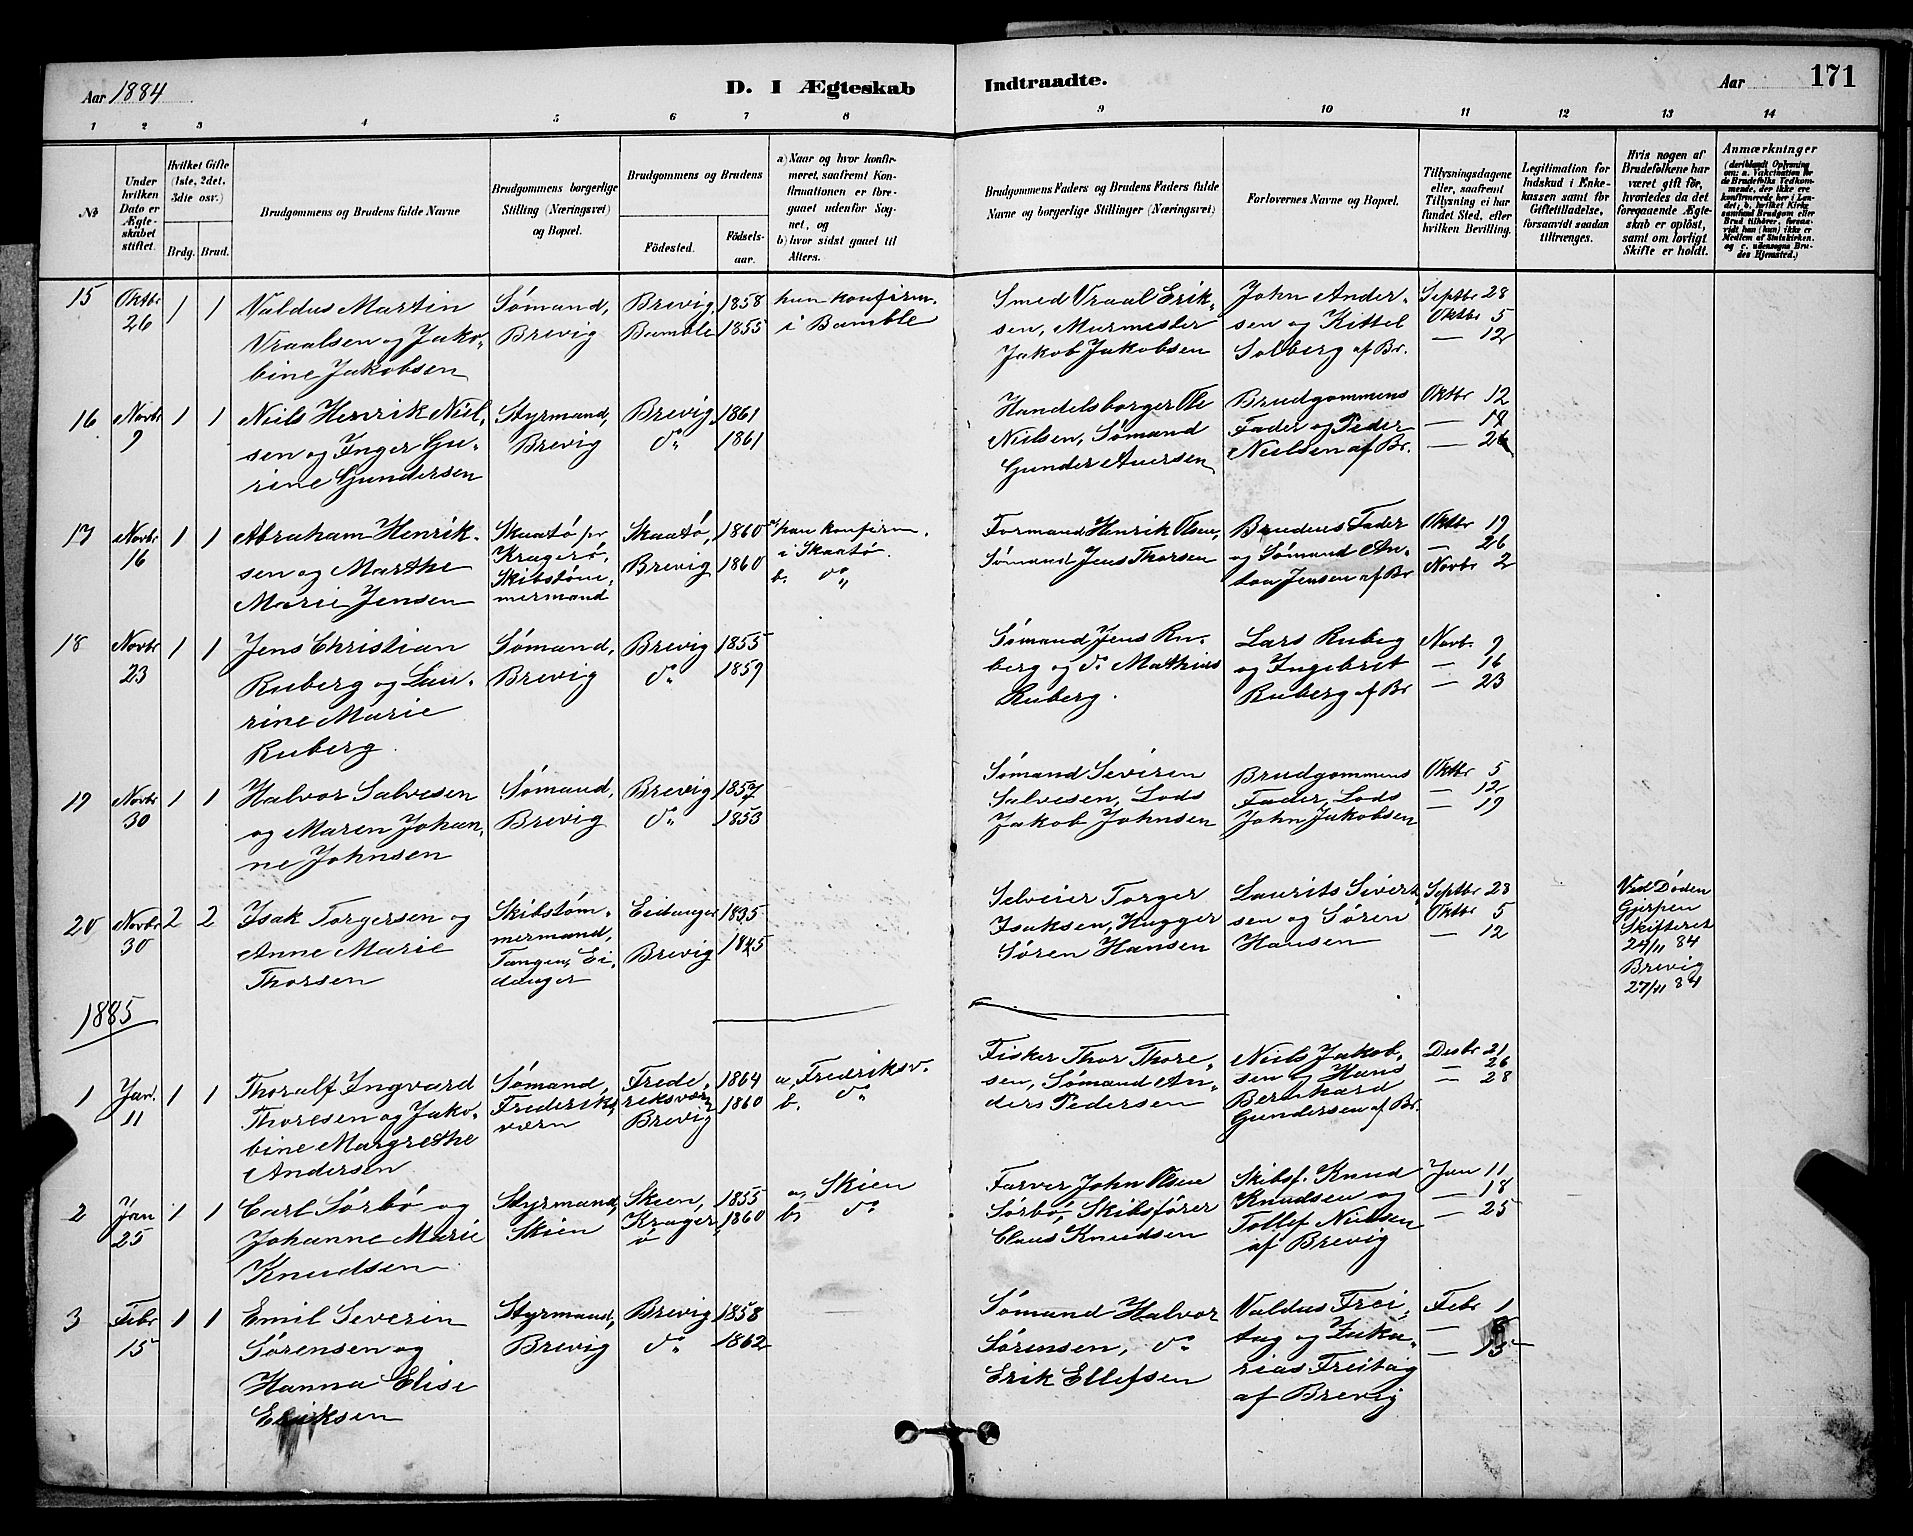 Aar 1884
D. I Ægteskab
Indtraadte.
Aar
171
1 2 3 4 5 6 7 8 9 10 11 12 13 14
No
Under
hvilken
Dato er
Ægte-
skabet
stiftet.
Hvilket Gifte
(1ste, 2det,
3dte osv.)
Brdg. Brud.
Brudgommens og Brudens fulde Navne
Brudgommens borgerlige
Stilling (Næringsvei)
og Bopæl.
Brudgommens og Brudens
Fødested.
Fødsels-
aar.
a) Naar og hvor konfir-
meret, saafremt Kon-
firmationen er fore-
gaaet udenfor Sog-
net, og
b) hvor sidst gaaet til
Alters.
Brudgommens Faders og Brudens Faders fulde
Navne og borgerlige Stillinger (Næringsvei)
Forlovernes Navne og Bopæl.
Tillysningsdagene
eller, saafremt
Tillysning ei har
fundet Sted, efter
hvilken Bevilling.
Legitimation for
Indskud i Enke-
kassen samt for
Giftetilladelse,
forsaavidt saadan
tiltrænges.
Hvis nogen af
Brudefolkene har
været gift før,
hvorledes da det
foregaaende Ægte-
skab er opløst,
samt om lovligt
Skifte er holdt.
Anmærkninger
(deriblandt Oplysning
om: a. Vakcination for
de Brudefolks Vedkom-
mende, der ikke ere
konfirmerede her i Lan-
det; b. hvilket Kirke
samfund Brudgom eller
Brud tilhører, forsaa-
vidt han (hun) ikke er
Medlem af Statskirken.
og c. udensogns Bru-
des Hjemsted.)
15 Oktbr 26 1 1
Valdus Martin
Vraalsen og Jako-
bine Jakobsen
Sømand,
Brevig
Brevig, 1858
Bamble 1855
hun konfirm.
i Bamble
Smed Vraal Erik-
sen, Murmester
Jakob Jakobsen
John Ander-
sen og Kittel
Solberg af Br.
Septbr 28
Oktbr 5
— 12
16 Novbr 9 1 1
Niels Henrik Niel-
sen og Inger Gu-
rine Gundersen
Styrmand,
Brevig
Brevig, 1861
do 1861
Handelsborger Ole
Nielsen, Sømand
Gunder Auersen
Brudgommens
Fader og Peder
Nielsen af Br.
Oktbr 12
— 19
— 26
17 Novbr 16 1 1
Abraham Henrik-
sen og Marthe
Marie Jensen
Skaatø pr
Kragerø,
Skibstøm-
mermand
Skaatø, 1860
Brevig 1860
a, han konfirm.
i Skaatø.
b. do
Formand Henrik Olsen,
Sømand Jens Thorsen
Brudens Fader
og Sømand An-
ton Jensen af Br
Oktbr 19
— 26
Novbr 2
18 Novbr 23 1 1
Jens Christian
Ruberg og Lau-
rine Marie
Ruberg.
Sømand,
Brevig
Brevig 1855
do 1859
Sømand Jens Ru-
berg og do Mathias
Ruberg.
Lars Ruberg
og Ingebret
Ruberg af Br
Novb. 9
— 16
— 23
19 Novbr 30 1 1
Halvor Salvesen
og Maren Johan-
ne Johnsen
Sømand,
Brevig
Brevig 1857
do 1853
Sømand Seviren
Salvesen, Lods
Jakob Johnsen
Brudgommens
Fader, Lods
John Jakobsen
Oktbr 5
— 12
— 19
20 Novbr 30 2 2
Isak Torgersen og
Anne Marie
Thorsen
Skibstøm-
mermand,
Tangen, Ei-
danger
Eidanger 1835
Brevig 1845
Selveier Torger
Isaksen, Hugger
Søren Hansen
Laurits Sivert-
sen og Søren
Hansen
Septbr 28
Oktbr 5
— 12
Ved Døden
Gjerpen
Skifteret
24/11 84
Brevig
27/11 84
1885
1 Jan. 11 1 1
Thoralf Ingvard
Thoresen og Jako-
bine Margrethe
Andersen
Sømand,
Frederiks-
værn
Frede- 1864
riksværn 1860
Brevig
a, Fredriksv.
b. do
Fisker Thor Thore-
sen, Sømand An-
ders Pedersen
Niels Jakob-
sen og Hans
Bernhard
Gundersen af Br.
Desbr 21
— 26
— 28
2 Jan 25 1 1
Carl Sørbø og
Johanne Marie
Knudsen
Styrmand,
Skien
Skien, 1855
Krager- 1860
ø
a, Skien
b, do
Farver John Olsen
Sørbø, Skibsfører
Claus Knudsen
Skibsf. Knud
Knudsen og
Tollef Nielsen
af Brevig
Jan 11
— 18
— 25
3 Febr 15 1 1
Emil Severin
Sørensen og
Hanna Elise
Eriksen
Styrmand,
Brevig
Brevig 1858
do 1862
Sømand Halvor
Sørensen, do
Erik Ellefsen
Valdus Frei-
tag og Zaka-
rias Freitag
af Brevig
Febr 1
— 8
— 15